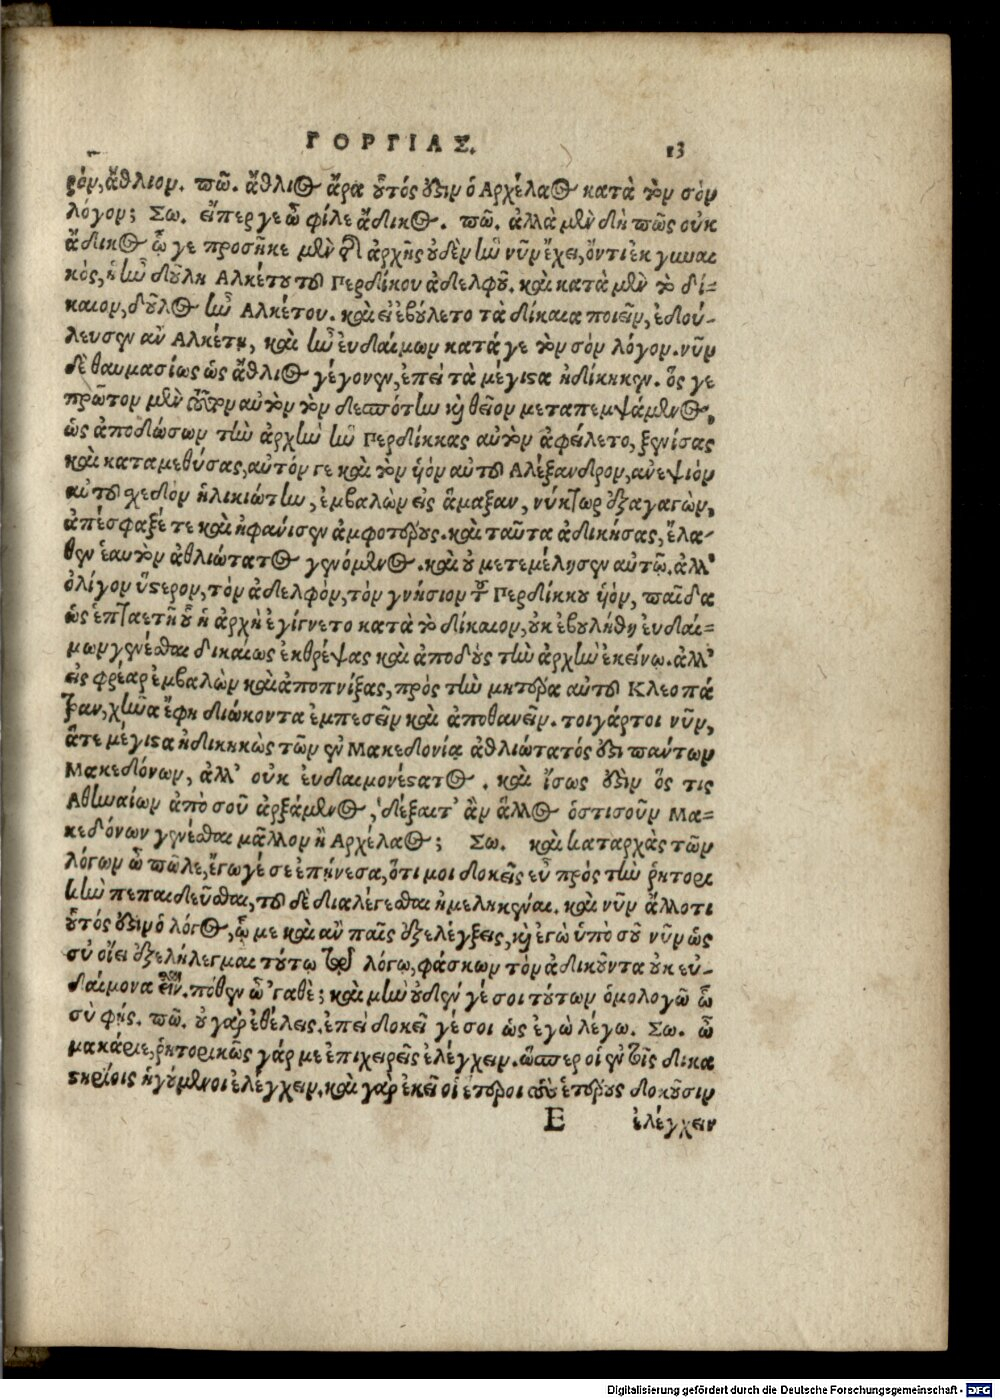 ΓΟΡΓΙΑΣ. 13
ρὸν, ἄθλιον. πῶ. ἄθλιος ἄρα οὗτός ἐστιν ὁ Ἀρχέλαος κατὰ τὸν σὸν
λόγον; Σω. εἴπερ γε ὦ φίλε ἄδικος. πῶ. ἀλλὰ μὲν δὴ πῶς οὐκ
ἄδικος ᾧ γε προσῆκε μὲν τῆς ἀρχῆς οὐδὲν ἣν νῦν ἔχει, ὄντι ἐκ γυναι
κὸς, ἣ ἦν δούλη Αλκέτου τοῦ Περδίκου ἀδελφοῦ. καὶ κατὰ μὲν τὸ δί-
καιον, δοῦλος ἦν Αλκέτου. καὶ εἰ ἐβούλετο τὰ δίκαια ποιεῖν, ἐδού-
λευσεν ἂν Αλκέτῃ, καὶ ἦν ἐυδαίμων κατά γε τὸν σὸν λόγον. νῦν
δὲ θαυμασίως ὡς ἄθλιος γέγονεν, ἐπεὶ τὰ μέγιστα ἠδίκηκεν. ὅς γε
πρῶτον μὲν τοῦτον αὐτὸν τὸν δεσπότην καὶ θεῖον μεταπεμψάμενος,
ὡς ἀποδώσων τὴν ἀρχὴν ἣν Περδίκκας αὐτὸν ἀφείλετο, ξενίσας
καὶ καταμεθύσας, αὐτόν τε καὶ τὸν ὑὸν αὐτοῦ Αλέξανδρον, ἀνεψιὸν
αὐτοῦ σχεδὸν ἡλικιώτην, ἐμβαλὼν εἰς ἅμαξαν, νύκτωρ ἐξαγαγὼν,
ἀπέσφαξέ τε καὶ ἠφάνισεν ἀμφοτέρους. καὶ ταῦτα ἀδικήσας, ἔλα-
θεν ἑαυτὸν ἀθλιώτατος γενόμενος. καὶ οὐ μετεμέλησεν αὐτῷ. ἀλλ'
ὀλίγον ὕστερον, τὸν ἀδελφὸν, τὸν γνήσιον τοῦ Περδίκκου ὑὸν, παῖδα
ὡς ἑπταετῆ οὗ ἡ ἀρχὴ ἐγίγνετο κατὰ τὸ δίκαιον, οὐκ ἐβουλήθη ἐυδαί=
μων γενέσθαι δικαίως ἐκθρέψας καὶ ἀποδοὺς τὴν ἀρχὴν ἐκείνῳ. ἀλλ'
εἰς φρέαρ ἐμβαλὼν καὶ ἀποπνίξας, πρὸς τὴν μητέρα αὐτοῦ Κλεοπά
τραν, χῆνα ἔφη διώκοντα ἐμπεσεῖν καὶ ἀποθανεῖν. τοιγάρτοι νῦν,
ἅτε μέγιστα ἠδικηκὼς τῶν ἐν Μακεδονίᾳ ἀθλιώτατός ἐστι πάντων
Μακεδόνων, ἀλλ' οὐκ ἐυδαιμονέστατος. καὶ ἴσως ἔστιν ὅς τις
Αθηναίων ἀπὸ σοῦ ἀρξάμενος, δέξαιτ' ἂν ἄλλος ὁστισοῦν Μα=
κεδόνων γενέσθαι μᾶλλον ἢ Αρχέλαος; Σω. καὶ καταρχὰς τῶν
λόγων ὦ πῶλε, ἔγωγέ σε ἐπῄνεσα, ὅτι μοι δοκεῖς εὖ πρὸς τὴν ῥητορι
κὴν πεπαιδεῦσθαι, τοῦ δὲ διαλέγεσθαι ἠμεληκέναι. καὶ νῦν ἄλλοτι
οὗτός ἐστιν ὁ λόγος, ᾧ με καὶ ἂν παῖς ἐξελέγξεις, καὶ ἐγὼ ὑπὸ σοῦ νῦν ὡς
σὺ οἴει ἐξελήλεγμαι τούτῳ τῷ λόγῳ, φάσκων τὸν ἀδικοῦντα οὐκ εὐ-
δαίμονα εἶναι. πόθεν ὦ 'γαθὲ; καὶ μὴν οὐδέν γέ σοι τούτων ὁμολογῶ ὧ
σὺ φῄς. πῶ. οὐ γὰρ ἐθέλεις. ἐπεὶ δοκεῖ γέ σοι ὡς ἐγὼ λέγω. Σω. ὦ
μακάριε, ῥητορικῶς γάρ με ἐπιχειρεῖς ἐλέγχειν. ὥσπερ οἱ ἐν τοῖς δικα
στηρίοις ἡγούμενοι ἐλέγχειν. καὶ γὰρ ἐκεῖ οἱ ἕτεροι τοὺς ἑτέρους δοκοῦσιν
E ἐλέγχειν
Digitalisierung gefördert durch die Deutsche Forschungsgemeinschaft - DFG